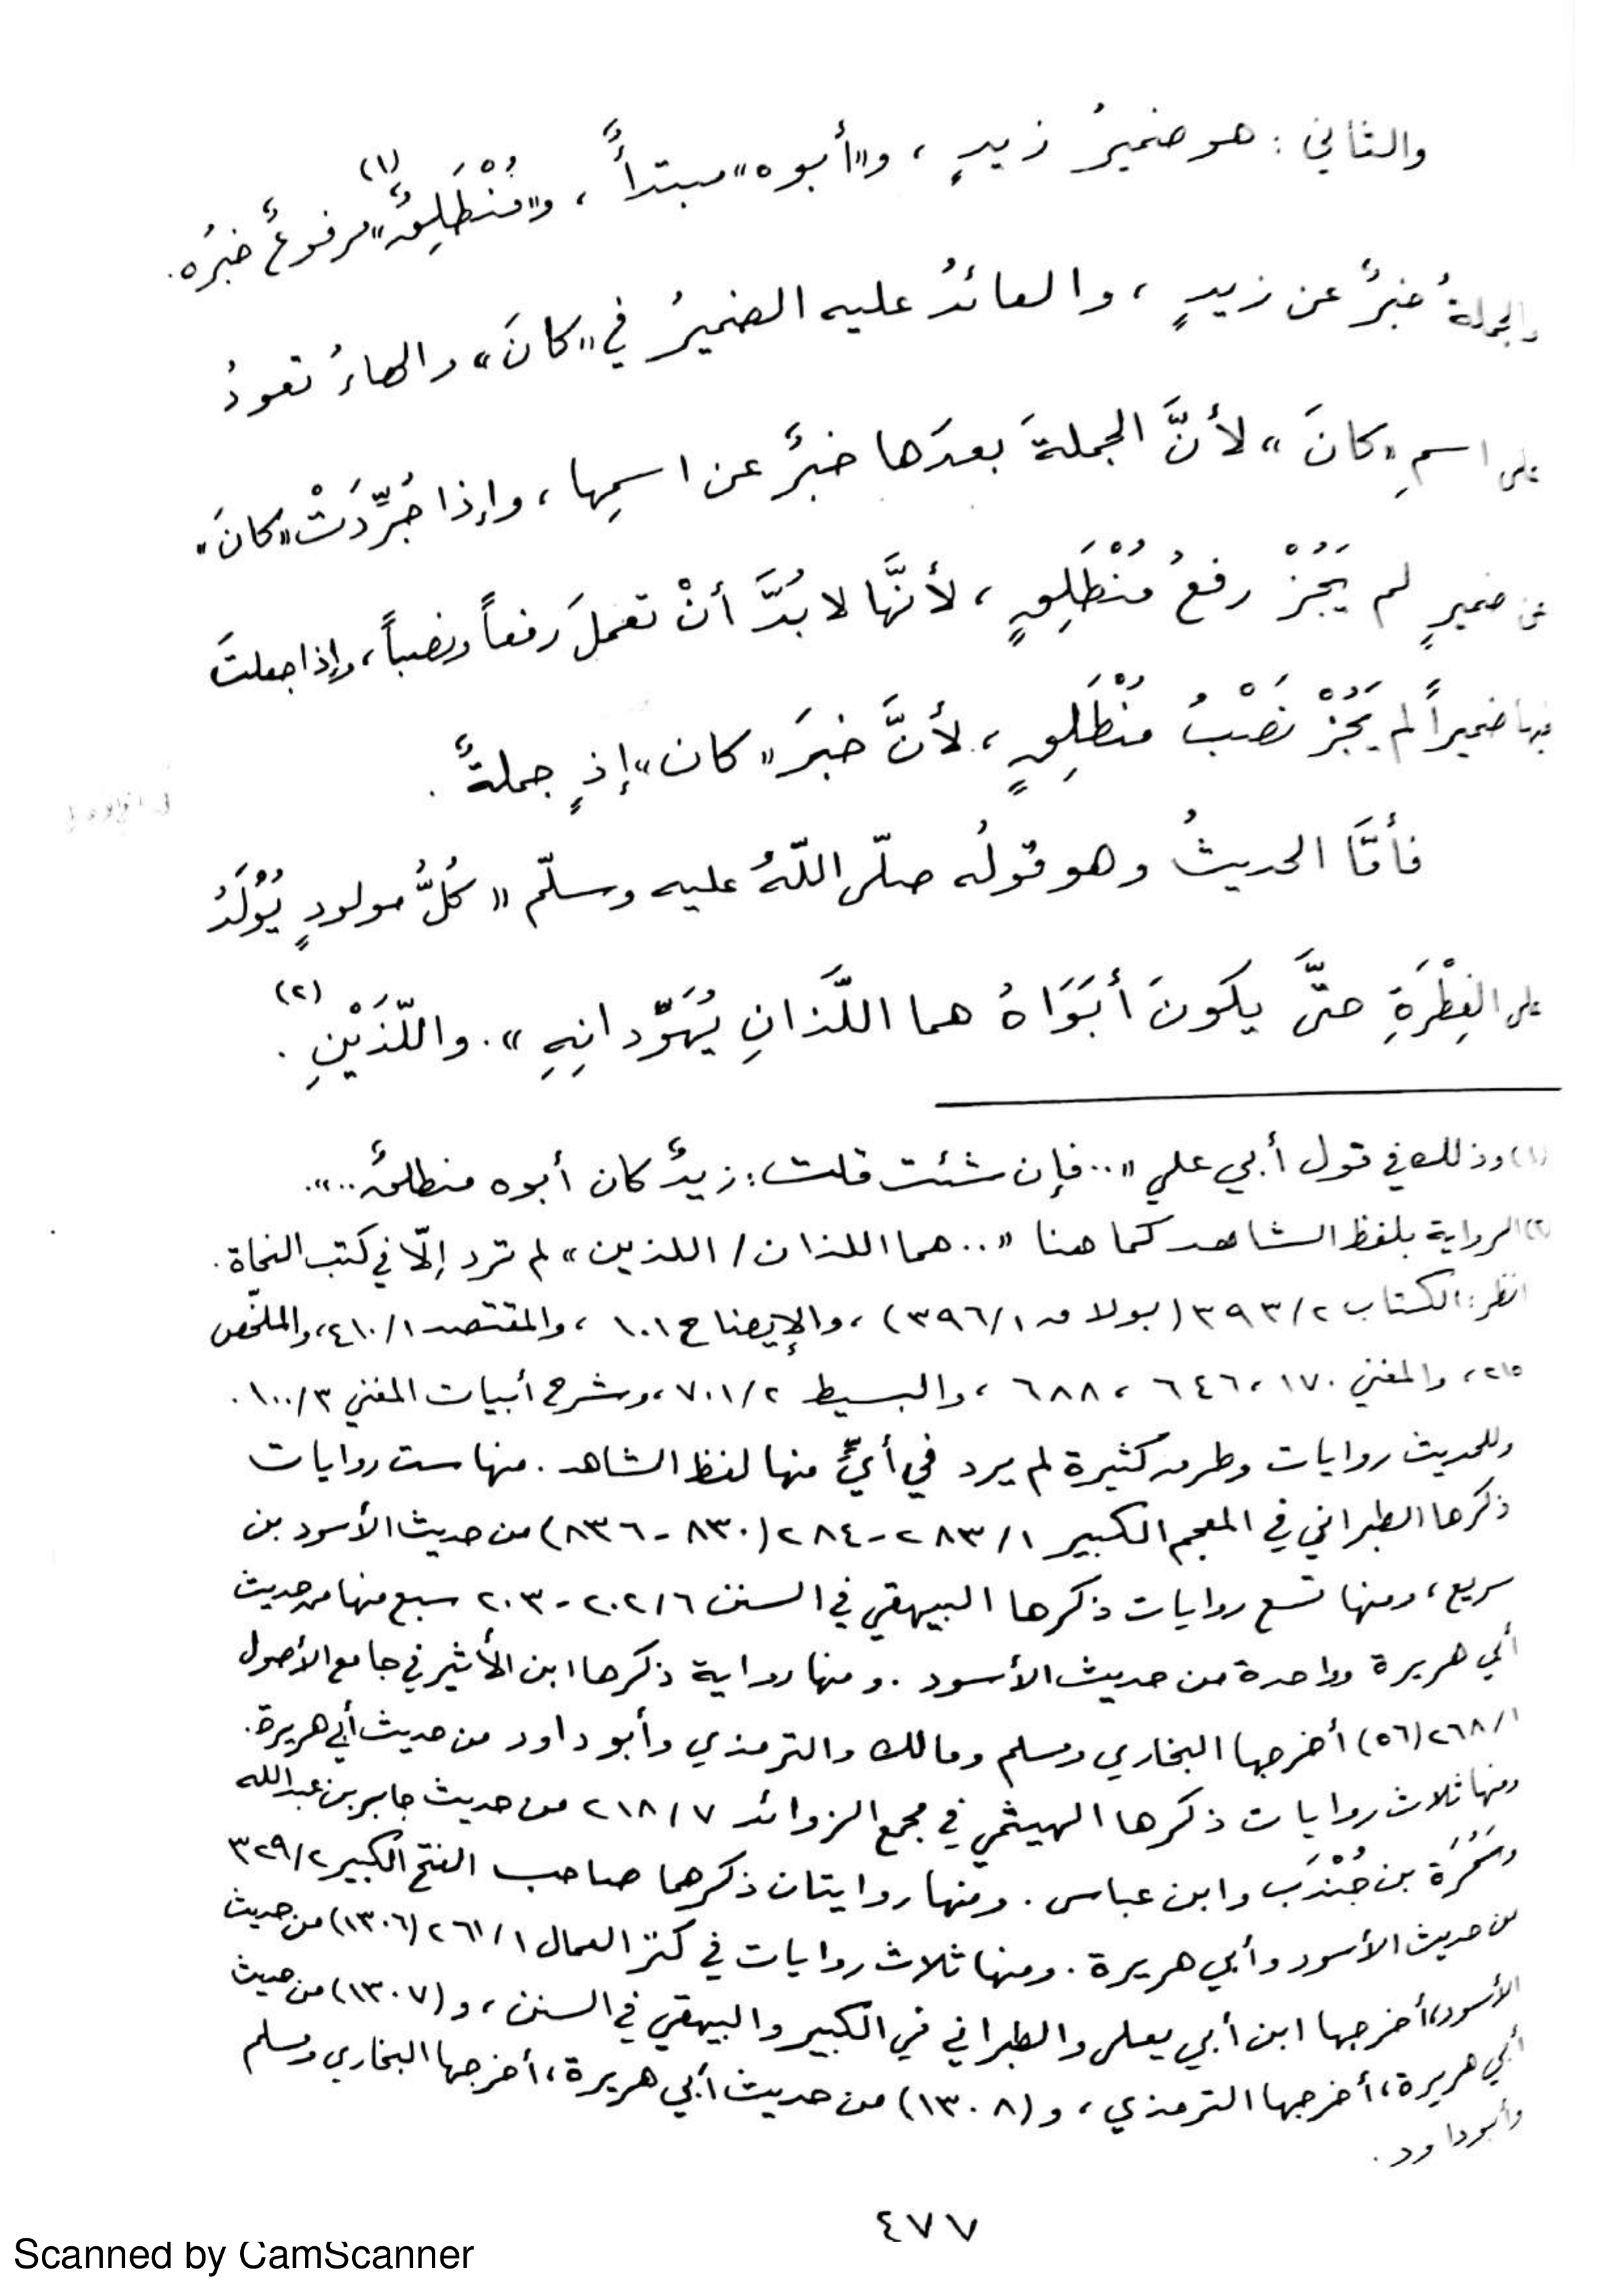 والثاني : هو ضميرُ زيدٍ ، و«أبوه» مبتدأٌ ، و«مُنْطَلِقٌ» مرفوعٌ خبرُه. (١)
والجملةُ خبرٌ عن زيدٍ ، والعائدُ عليه الضميرُ في «كانَ» والهاءُ تعودُ
على اسمِ «كانَ» لأنَّ الجملةَ بعدَها خبرٌ عن اسمِها ، وإذا جُرِّدَتْ «كانَ»
من ضميرٍ لم يَجُزْ رفعُ مُنْطَلِقٍ ، لأنَّها لا بُدَّ أنْ تعملَ رفعاً ونصباً ، وإذا جعلتَ
فيها ضميراً لم يَجُزْ نَصْبُ مُنْطَلِقٍ ، لأنَّ خبرَ «كان» إذٍ جملةٌ .
فأمَّا الحديثُ وهو قولُه صلّى اللّهُ عليه وسلّم «كُلُّ مولودٍ يُوْلَدُ
على الفِطْرَةِ حتَّى يكونَ أبَوَاهُ هما اللَّذانِ يُهَوِّدانِهِ» . واللّذَيْنِ (٢) .
(١) وذلك في قول أبي علي «.. فإن شئت قلت : زيدٌ كان أبوه منطلقٌ ..» .
(٢) الرواية بلفظ الشاهد كما هنا «.. هما اللذان / اللذين» لم ترد إلّا في كتب النحاة .
انظر : الكتاب ٣٩٣/٢ (بولاق ٣٩٦/١) ، والإيضاح ١٠١ ، والمقتصد ٤١٠/١ ، والملخّص
٢١٥ ، والمغني ١٧٠ ، ٦٤٦ ، ٦٨٨ ، والبسيط ٧٠١/٢ ، وشرح أبيات المغني ١٠٠/٣ .
وللحديث روايات وطرق كثيرة لم يرد في أيٍّ منها لفظ الشاهد . منها ست روايات
ذكرها الطبراني في المعجم الكبير ٢٨٣/١ - ٢٨٤ (٨٣٠ - ٨٣٦) من حديث الأسود بن
سريع ، ومنها تسع روايات ذكرها البيهقي في السنن ٢٠٢/٦ - ٢٠٣ سبع منها من حديث
أبي هريرة وواحدة من حديث الأسود . ومنها رواية ذكرها ابن الأثير في جامع الأصول
٢٦٨/١ (٥٦) أخرجها البخاري ومسلم ومالك والترمذي وأبو داود من حديث أبي هريرة .
ومنها ثلاث روايات ذكرها الهيثمي في مجمع الزوائد ٢١٨/٧ من حديث جابر بن عبدالله
وسَمُرَة بن جُنْدَب وابن عباس . ومنها روايتان ذكرهما صاحب الفتح الكبير ٣٢٩/٢
من حديث الأسود وأبي هريرة . ومنها ثلاث روايات في كنز العمال ٢٦١/١ (١٣٠٦) من حديث
الأسود ، أخرجها ابن أبي يعلى والطبراني في الكبير والبيهقي في السنن ، و (١٣٠٧) من حديث
أبي هريرة ، أخرجها الترمذي ، و (١٣٠٨) من حديث أبي هريرة ، أخرجها البخاري ومسلم
وأبو داود .
٤٧٧
Scanned by CamScanner